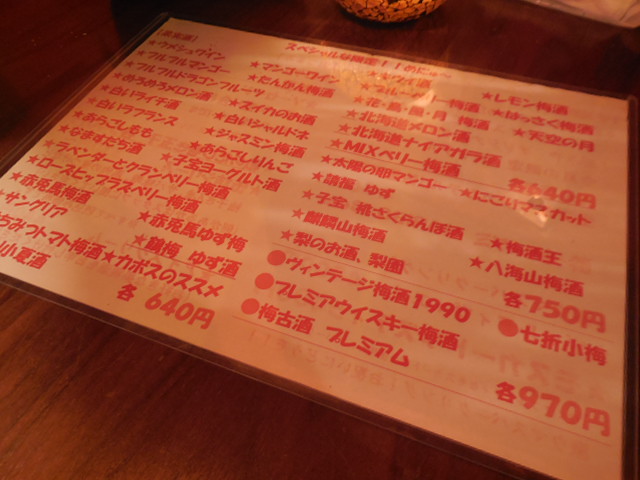 ★ウメシュワイン
★フルフルマンゴー
★フルフルドラゴンフルーツ
★めろうめろメロン酒
★白いライチ酒 ★スイカのお酒
★白いラフランス ★白いシャルドネ
★あらごしもも ★ジャスミン梅酒
★なますだち酒 ★あらごしりんご
★ラベンダーとクランベリー梅酒 ★子宝ヨーグルト酒
★ローズヒップラズベリー梅酒
赤兎馬梅酒 ★赤兎馬ゆず梅
サングリア
トマト梅酒 ゆず酒
小夏酒 ★カボスのススメ
各 640円
★マンゴーワイン
★たんかん梅酒
★レモン梅酒
★花・鳥・風・月 梅酒 ★はっさく梅酒
★北海道メロン酒 ★天空の月
★北海道ナイアガラ酒
★MIXベリー梅酒
各640円
★太陽の マンゴー ★にごり
ゆず
★子宝 さくらんぼ酒 ★梅酒王
★麒麟山梅酒 ★八海山梅酒
★梨のお酒、梨園
各750円
●ヴィンテージ梅酒1990 ●七折小梅
●プレミアウイスキー梅酒
●梅古酒 プレミアム
各970円